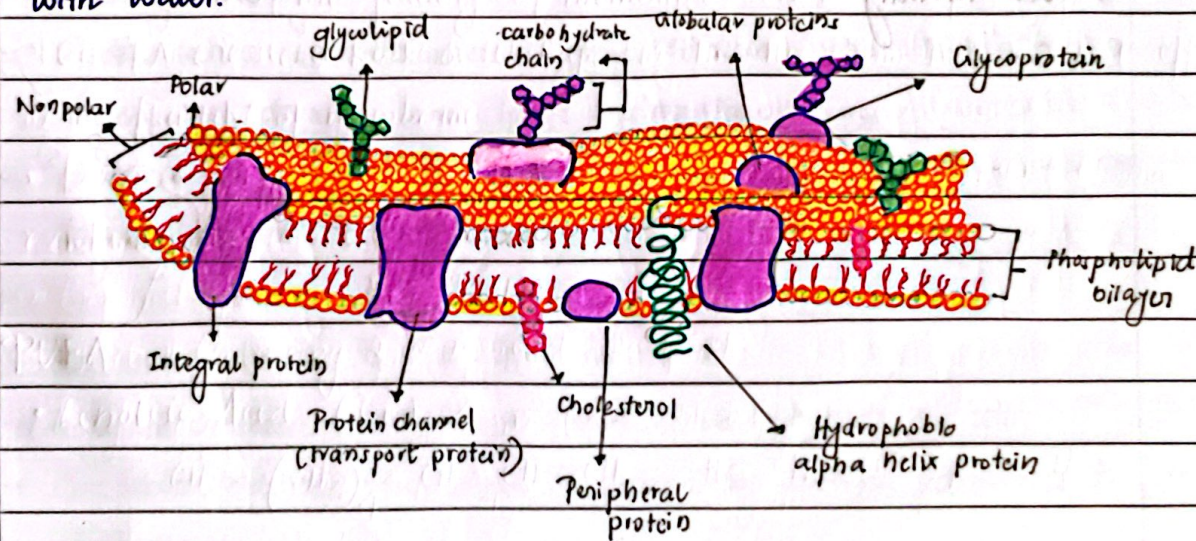 with water.
glycolipid
carbohydrate
chain
Globular proteins
Glycoprotein
Polar
Nonpolar
Phospholipid
bilayer
Integral protein
Protein channel
(transport protein)
Cholesterol
Peripheral
protein
Hydrophobic
alpha helix protein